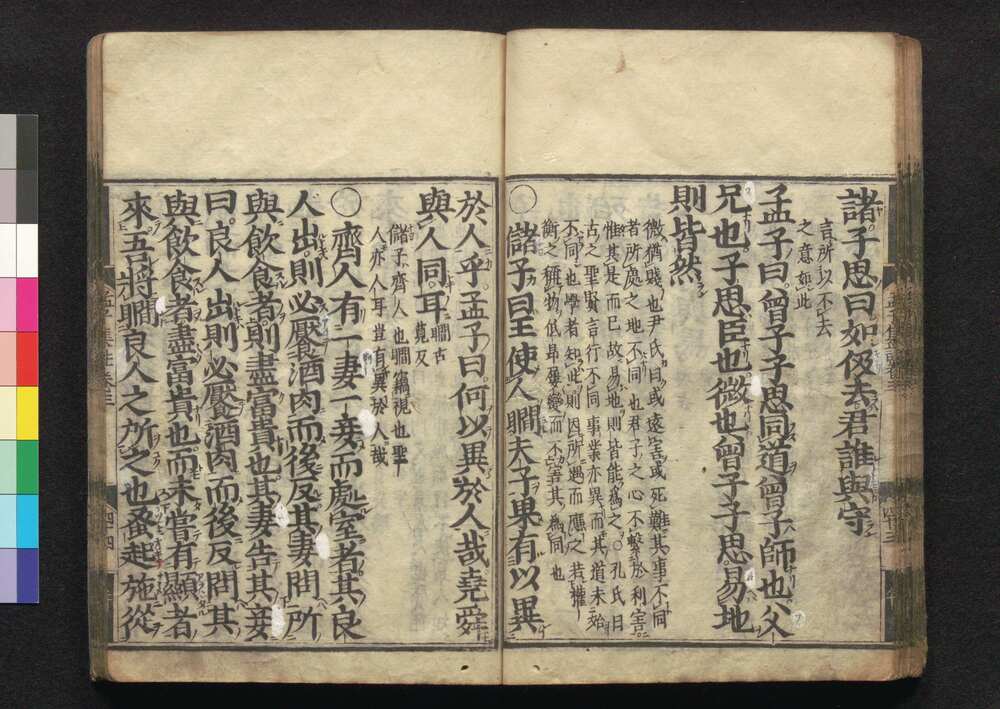 諸子思曰如伋去君誰與守
言所以不去
之意如此
孟子曰曾子子思同道曾子師也父
兄也子思臣也微也曾子子思易地
則皆然
微猶賤也尹氏曰或遠害或死難其事不同
者所處之地不同也君子之心不繫於利害
惟其是而已故易地則皆能爲之○孔氏曰
古之聖賢言行不同事業亦異而其道未始
不同也學者知此則因所遇而應之若權
衡之稱物低昂屢變而不害其爲同也
○儲子曰王使人瞯夫子果有以異
於人乎孟子曰何以異於人哉堯舜
與人同耳
瞯古
莧反
儲子齊人也瞯竊視也聖
人亦人耳豈有異於人哉
○齊人有一妻一妾而處室者其良
人出則必饜酒肉而後反其妻問所
與飲食者則盡富貴也其妻告其妾
曰良人出則必饜酒肉而後反問其
與飲食者盡富貴也而未嘗有顯者
來吾將瞯良人之所之也蚤起施從
四四